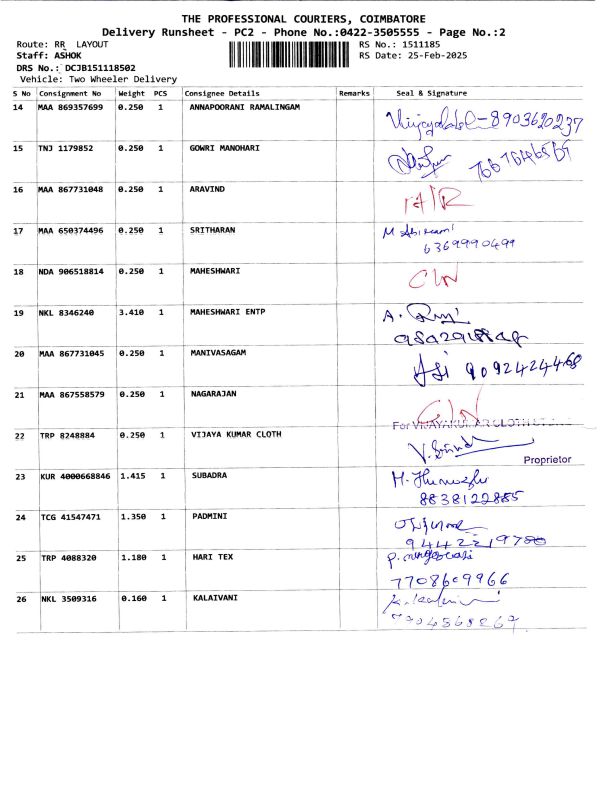 THE PROFESSIONAL COURIERS, COIMBATORE
Delivery Runsheet - PC2 - Phone No.:0422-3505555 - Page No.:2
Route: RR LAYOUT RS No.: 1511185
Staff: ASHOK RS Date: 25-Feb-2025
DRS No.: DCJB151118502
Vehicle: Two Wheeler Delivery
S No Consignment No Weight PCS Consignee Details Remarks Seal & Signature
14 MAA 869357699 0.250 1 ANNAPOORANI RAMALINGAM
8903620237
15 TNJ 1179852 0.250 1 GOWRI MANOHARI
7667646569
16 MAA 867731048 0.250 1 ARAVIND
17 MAA 650374496 0.250 1 SRITHARAN M Abirami
6369990499
18 NDA 906518814 0.250 1 MAHESHWARI
19 NKL 8346240 3.410 1 MAHESHWARI ENTP A.
20 MAA 867731045 0.250 1 MANIVASAGAM
9092424468
21 MAA 867558579 0.250 1 NAGARAJAN
For VIJAYAKUMAR CLOTH
22 TRP 8248884 0.250 1 VIJAYA KUMAR CLOTH
Proprietor
23 KUR 4000668846 1.415 1 SUBADRA
8838122885
24 TCG 41547471 1.350 1 PADMINI
9442219780
25 TRP 4088320 1.180 1 HARI TEX
7708609966
26 NKL 3509316 0.160 1 KALAIVANI